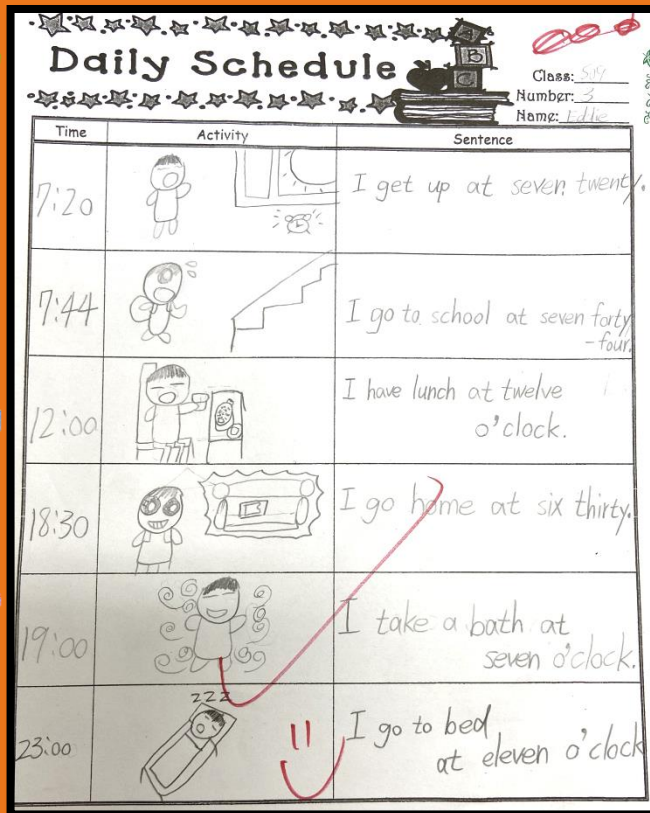 A
B
C
Daily Schedule
Class: 519
Number: 3
Name: Eddie
Time Activity Sentence
7:20 I get up at seven twenty.
7:44 I go to school at seven forty
-four.
12:00 I have lunch at twelve
o'clock.
18:30 I go home at six thirty.
19:00 I take a bath at
seven o'clock.
zzz
23:00 I go to bed
at eleven o'clock